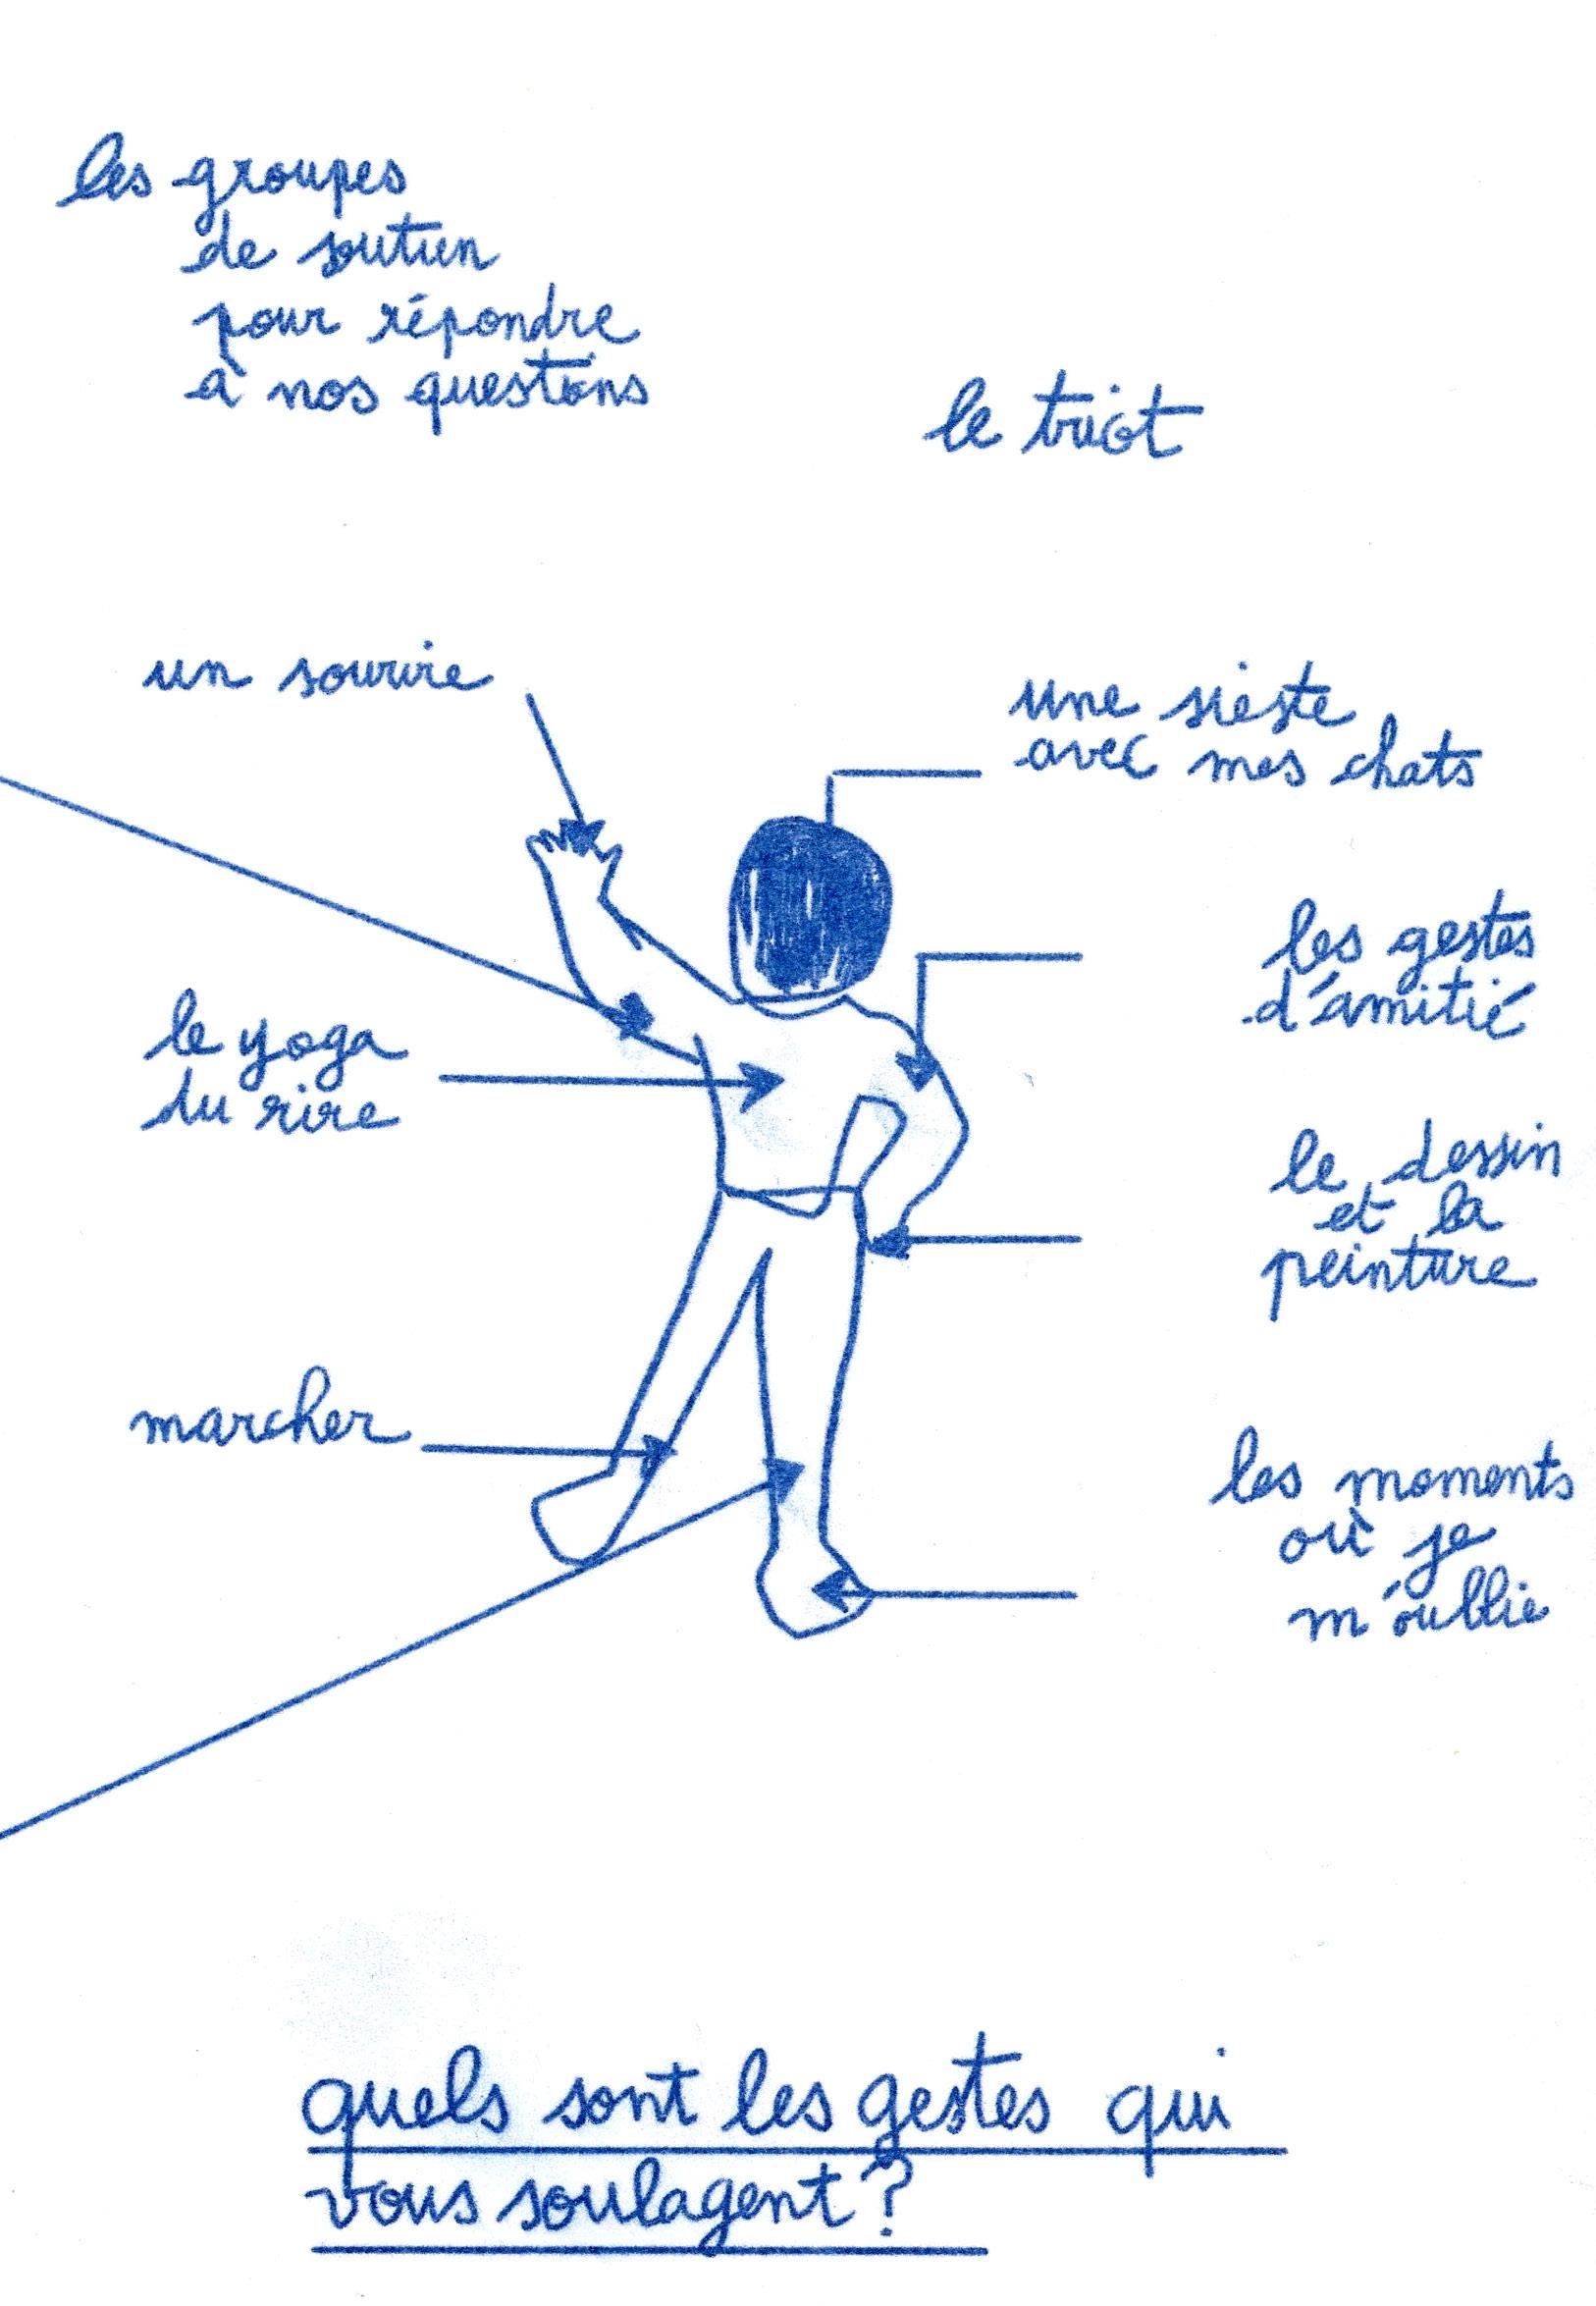 les groupes
de soutien
pour répondre
à nos questions
le tricot
un sourire
une sieste
avec mes chats
les gestes
d'amitié
le yoga
du rire
le dessin
et la
peinture
marcher
les moments
où je
m'oublie
quels sont les gestes qui
vous soulagent ?